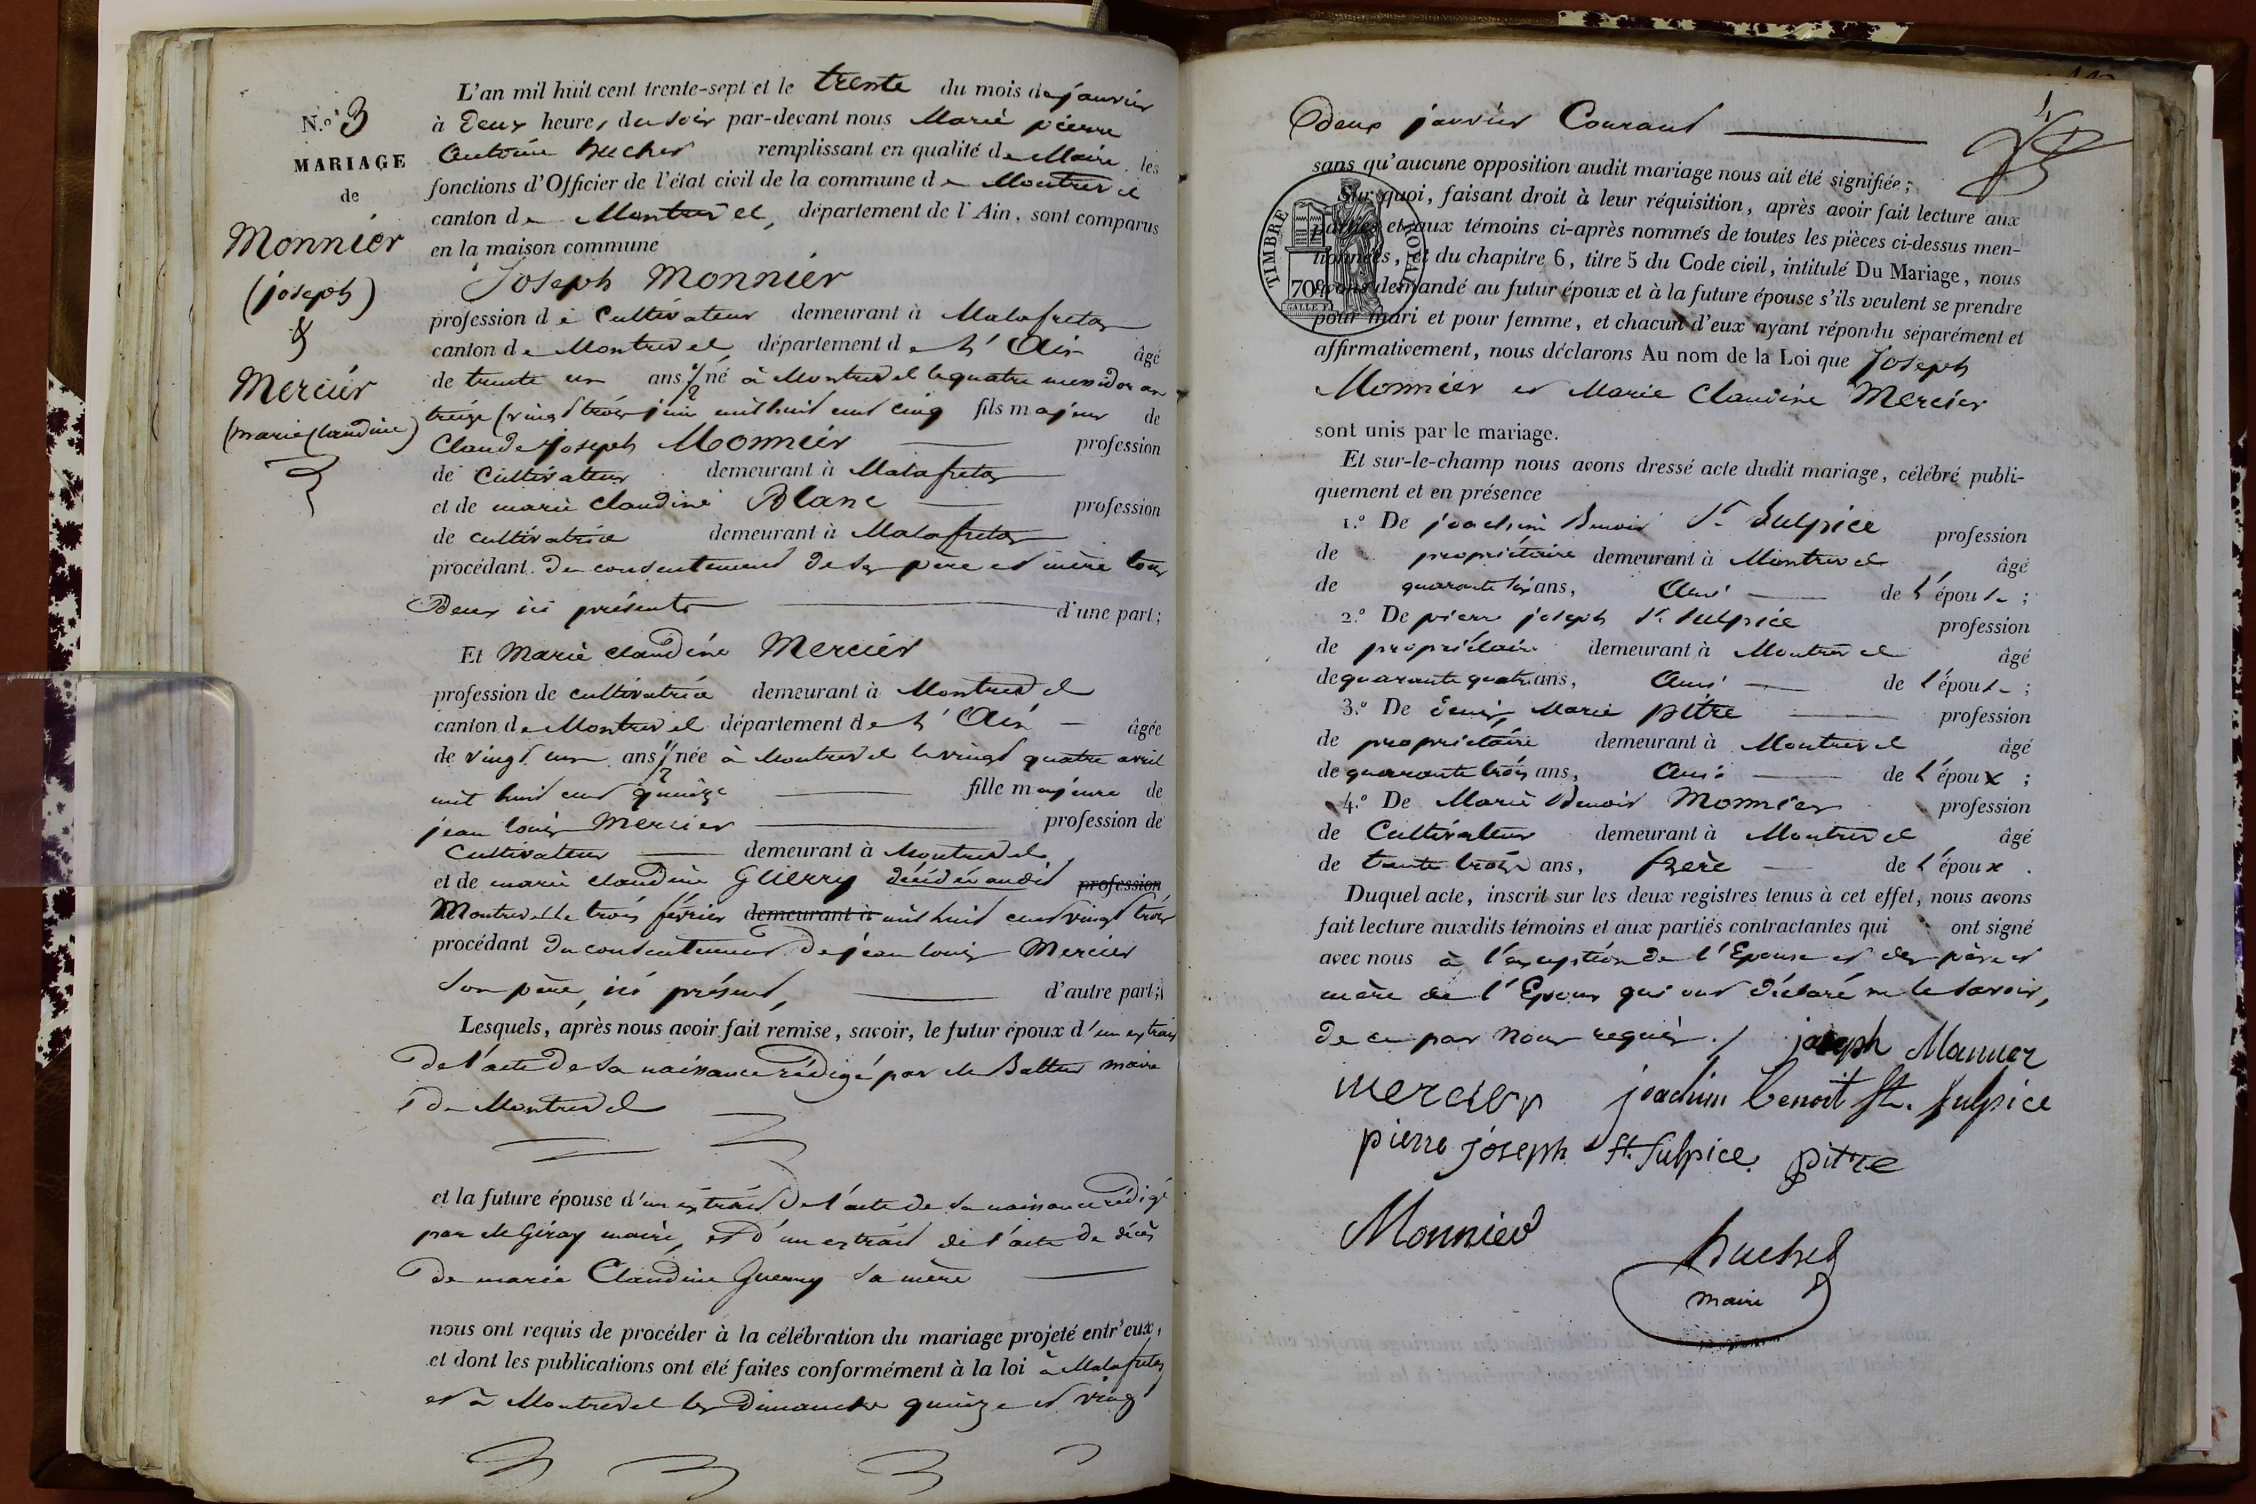 L'an mil huit cent trente-sept et le trente du mois de janvier
N.º 3
à deux heures du soir par-devant nous Marie pierre
MARIAGE
Antoine huchet remplissant en qualité de Maire les
de
fonctions d'Officier de l'état civil de la commune de Montrevel
canton de Montrevel, département de l'Ain, sont comparus
Monnier
en la maison commune
(joseph)
Joseph Monnier
&
profession de Cultivateur demeurant à Malafretaz
canton de Montrevel département de l'Ain âgé
Mercier
de trente un ans 1/2 né à Montrevel le quatre messidor an
(marie Claudine)
treize (vingt trois juin mil huit cent cinq fils majeur de
Claude joseph Monnier profession
de Cultivateur demeurant à Malafretaz
et de marie Claudine Blanc profession
de cultivatrice demeurant à Malafretaz
procédant du consentement de ses père et mère tous
deux ici présents d'une part;
Et Marie Claudine Mercier
profession de cultivatrice demeurant à Montrevel
canton de Montrevel département de l'Ain âgée
de vingt un ans 1/2 née à Montrevel le vingt quatre avril
mil huit cent quinze fille majeure de
jean louis Mercier profession de
Cultivateur demeurant à Montrevel
et de marie claudine Guerry décédée audit profession
Montrevel le trois février demeurant à mil huit cent vingt trois
procédant du consentement de jean louis Mercier
son père, ici présent, d'autre part;
Lesquels, après nous avoir fait remise, savoir, le futur époux d'un extrait
de l'acte de sa naissance rédigé par Mr maire
de Montrevel
et la future épouse d'un extrait de l'acte de sa naissance rédigé
par Mr Giray maire, et d'un extrait de l'acte de décès
de marie Claudine Guerry sa mère
nous ont requis de procéder à la célébration du mariage projeté entr'eux,
et dont les publications ont été faites conformément à la loi à Malafretaz
et à Montrevel les Dimanches quinze et vingt
deux janvier Courant
sans qu'aucune opposition audit mariage nous ait été signifiée;
Sur quoi, faisant droit à leur réquisition, après avoir fait lecture aux
parties et aux témoins ci-après nommés de toutes les pièces ci-dessus men-
tionnées, et du chapitre 6, titre 5 du Code civil, intitulé Du Mariage, nous
avons demandé au futur époux et à la future épouse s'ils veulent se prendre
pour mari et pour femme, et chacun d'eux ayant répondu séparément et
affirmativement, nous déclarons Au nom de la Loi que Joseph
TIMBRE ROYAL
70c
Monnier et Marie Claudine Mercier
sont unis par le mariage.
Et sur-le-champ nous avons dressé acte dudit mariage, célébré publi-
quement et en présence
1.º De joachim Benoit St. Sulpice profession
de propriétaire demeurant à Montrevel âgé
de quarante six ans, Ami de l'épouse;
2.º De pierre joseph St. Sulpice profession
de propriétaire demeurant à Montrevel âgé
de quarante quatre ans, Ami de l'épouse;
3.º De Denis Marie pitre profession
de propriétaire demeurant à Montrevel âgé
de quarante trois ans, Ami de l'époux;
4.º De Marie Benoit Monnier profession
de Cultivateur demeurant à Montrevel âgé
de trente trois ans, frère de l'époux.
Duquel acte, inscrit sur les deux registres tenus à cet effet, nous avons
fait lecture auxdits témoins et aux parties contractantes qui ont signé
avec nous à l'exception de l'Epouse et des père et
mère de l'Epoux qui ont déclaré ne le savoir,
de ce par Nous requis./ joseph Monnier
mercier joachim benoit St. Sulpice
pierre joseph St. Sulpice pitre
Monnier
huchet
maire